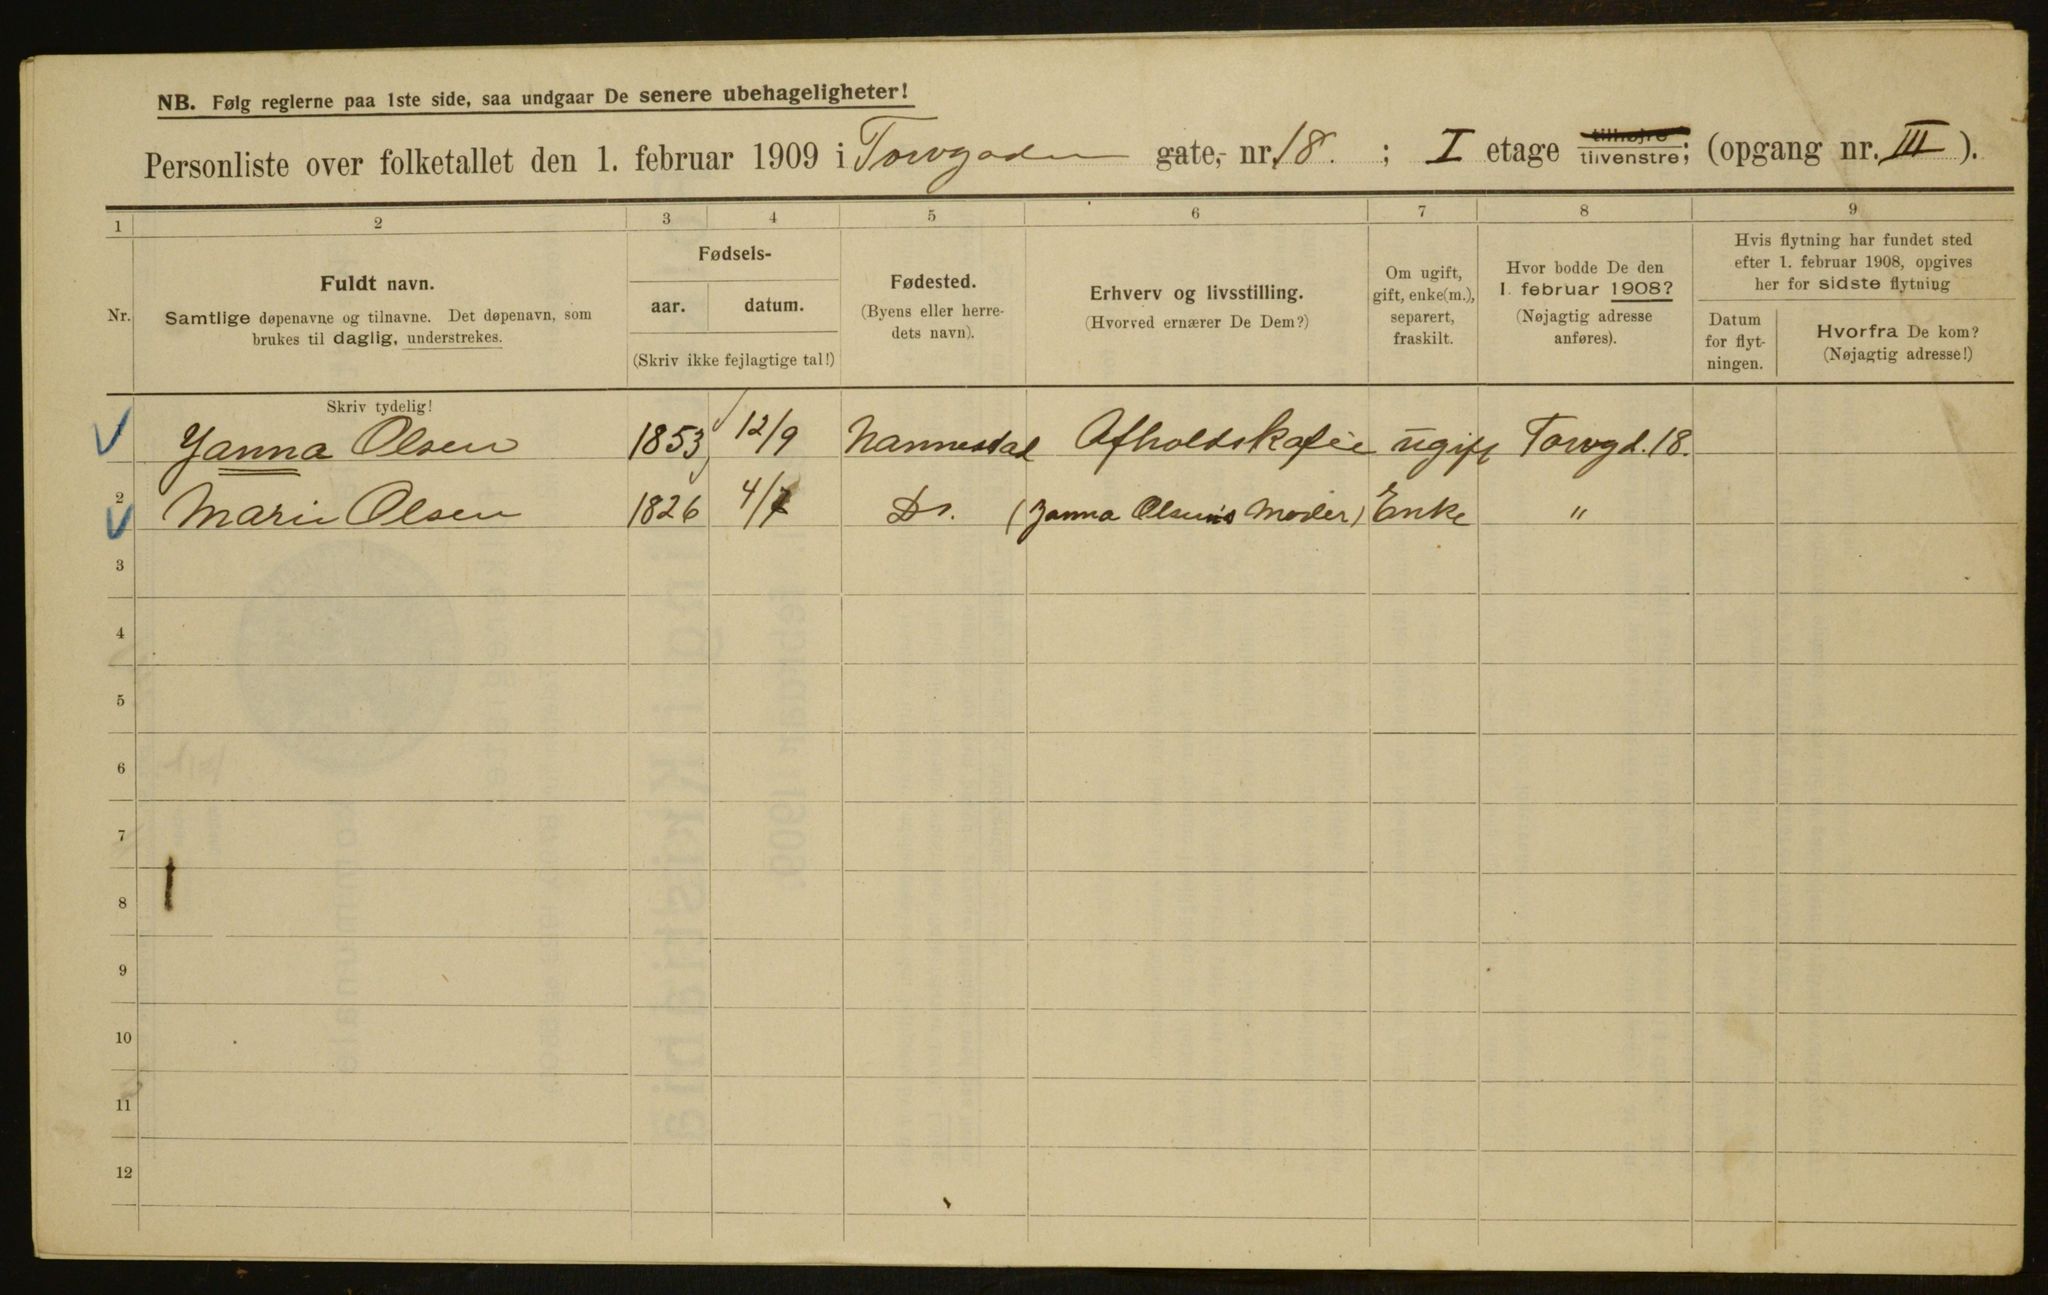 NB. Følg reglerne paa 1ste side, saa undgaar De senere ubehageligheter!
Personliste over folketallet den 1. februar 1909 i Torvgaden gate, nr. 18. ; I etage tilhøjre tilvenstre; (opgang nr. III ).
1 2 3 4 5 6 7 8 9
Nr.
Fuldt navn.
Samtlige døpenavne og tilnavne. Det døpenavn, som
brukes til daglig, understrekes.
Fødsels-
aar. datum.
(Skriv ikke fejlagtige tal!)
Fødested.
(Byens eller herre-
dets navn).
Erhverv og livsstilling.
(Hvorved ernærer De Dem?)
Om ugift,
gift, enke(m.),
separert,
fraskilt.
Hvor bodde De den
1. februar 1908?
(Nøjagtig adresse
anføres).
Hvis flytning har fundet sted
efter 1. februar 1908, opgives
her for sidste flytning
Datum
for flyt-
ningen.
Hvorfra De kom?
(Nøjagtig adresse!)
Skriv tydelig!
Janna Olsen 1853 12/9 Nannestad Afholdskafée ugift Torvgd. 18.
2 Marie Olsen 1826 4/7 Do. (Janna Olsen's Moder) Enke "
3
4
5
6
7
8
9
10
11
12